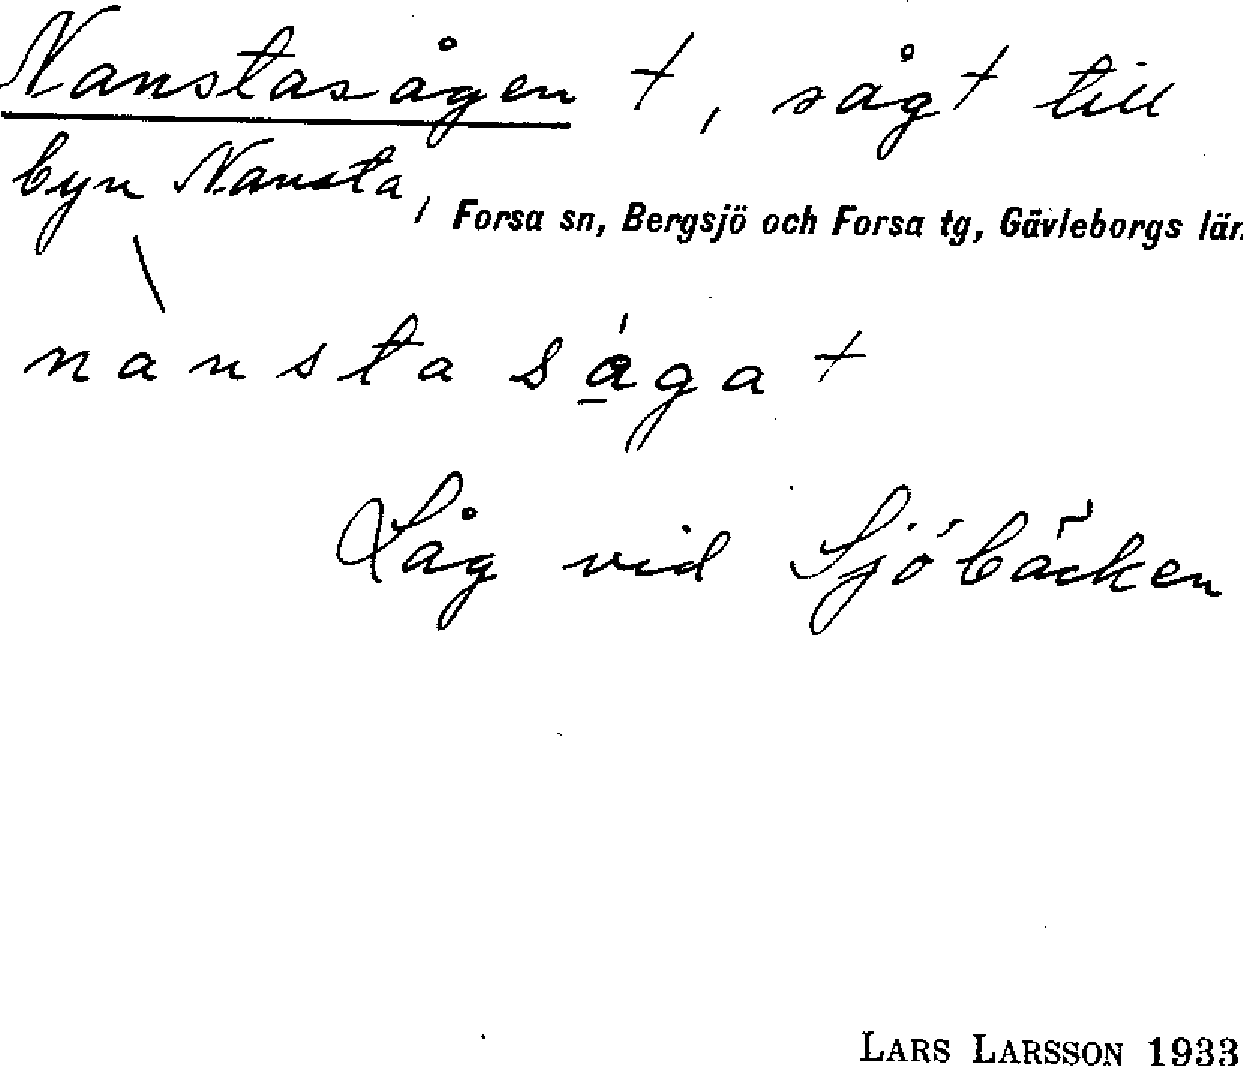 Nanstasågen †, sågt till
byn Nansta, Forsa sn, Bergsjö och Forsa tg, Gävleborgs län
nànsta sága †
Låg vid Sjöbäcken
LARS LARSSON 1933